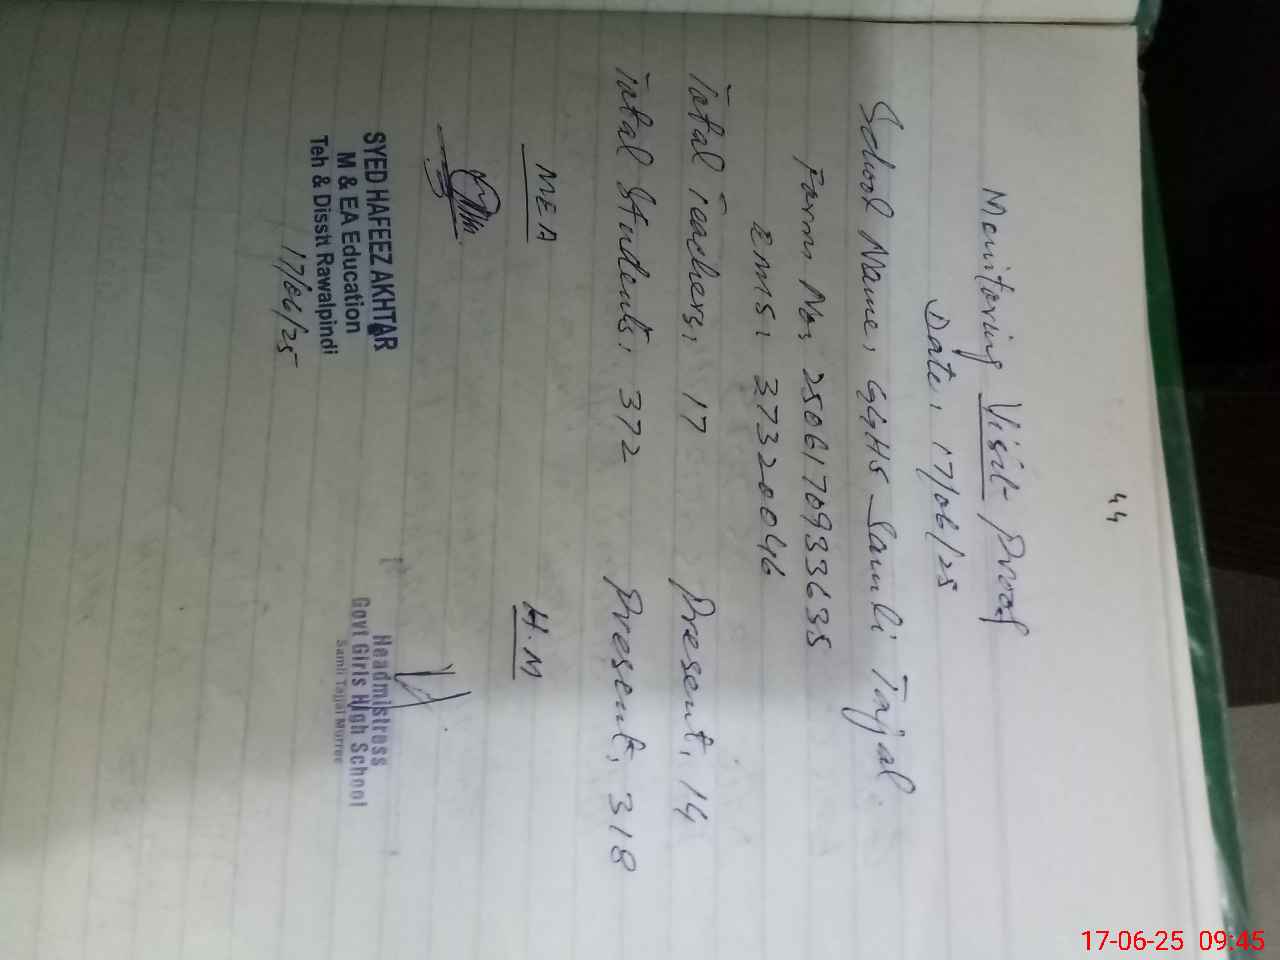 44
Monitoring Visit Proof
Date, 17/06/25
School Name, GGHS Samli Tajal.
Form No, 250617093363S
EMIS, 37320046
Total Teachers, 17 Present, 14
Total Students, 372 Present, 318
MEA H.M
SYED HAFEEZ AKHTAR
M & EA Education
Teh & Disstt Rawalpindi
17/06/25
Headmistress
Govt Girls High School
Samli Tajjal Murree
17-06-25 09:45